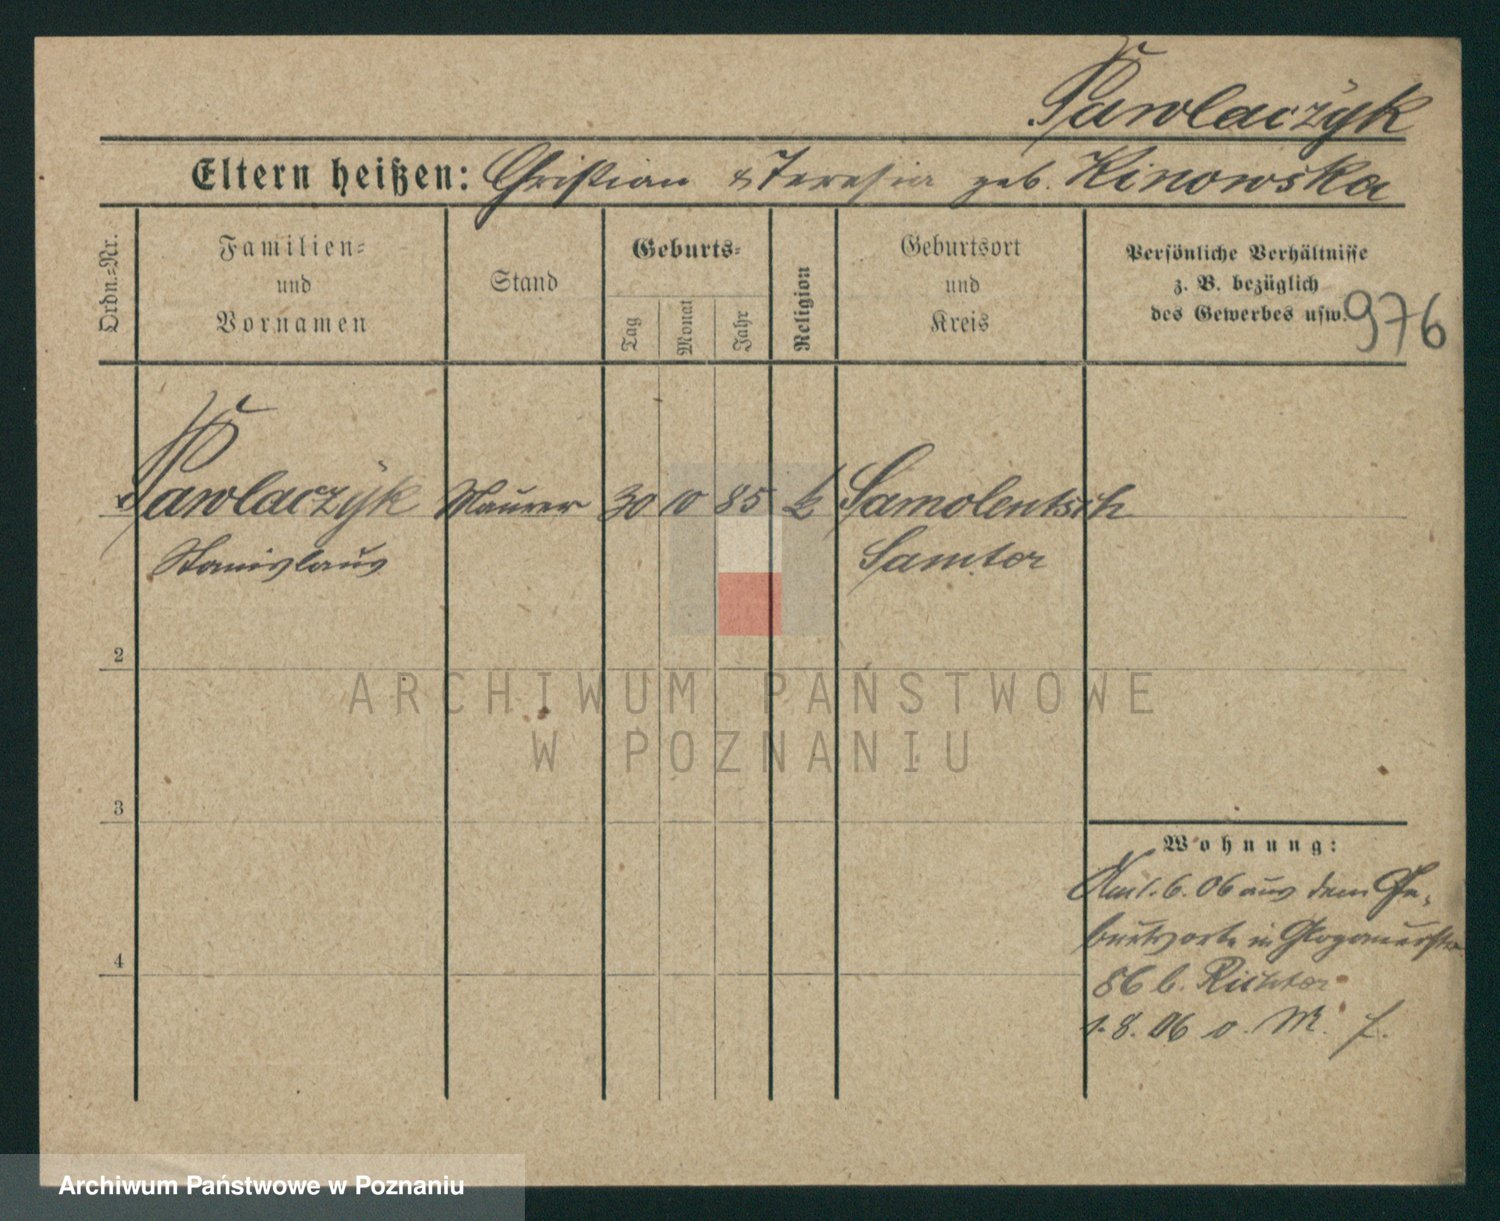 Pawlaczyk
Eltern heißen: Christian & Teresia geb. Kinowska
Ordn.-Nr.
Familien-
und
Vornamen
Stand
Geburts-
Tag
Monat
Jahr
Religion
Geburtsort
und
Kreis
Persönliche Verhältnisse
z. B. bezüglich
des Gewerbes usw.
976
Pawlaczyk Maurer 30 10 85 k Samolentsch
Stanislaus Samter
2
3
4
Wohnung:
1.6.06 aus dem Ge-
burtsorte in Glogauerstr
86 b. Richter
1.8.06 o. M.
ARCHIWUM PAŃSTWOWE
W POZNANIU
Archiwum Państwowe w Poznaniu